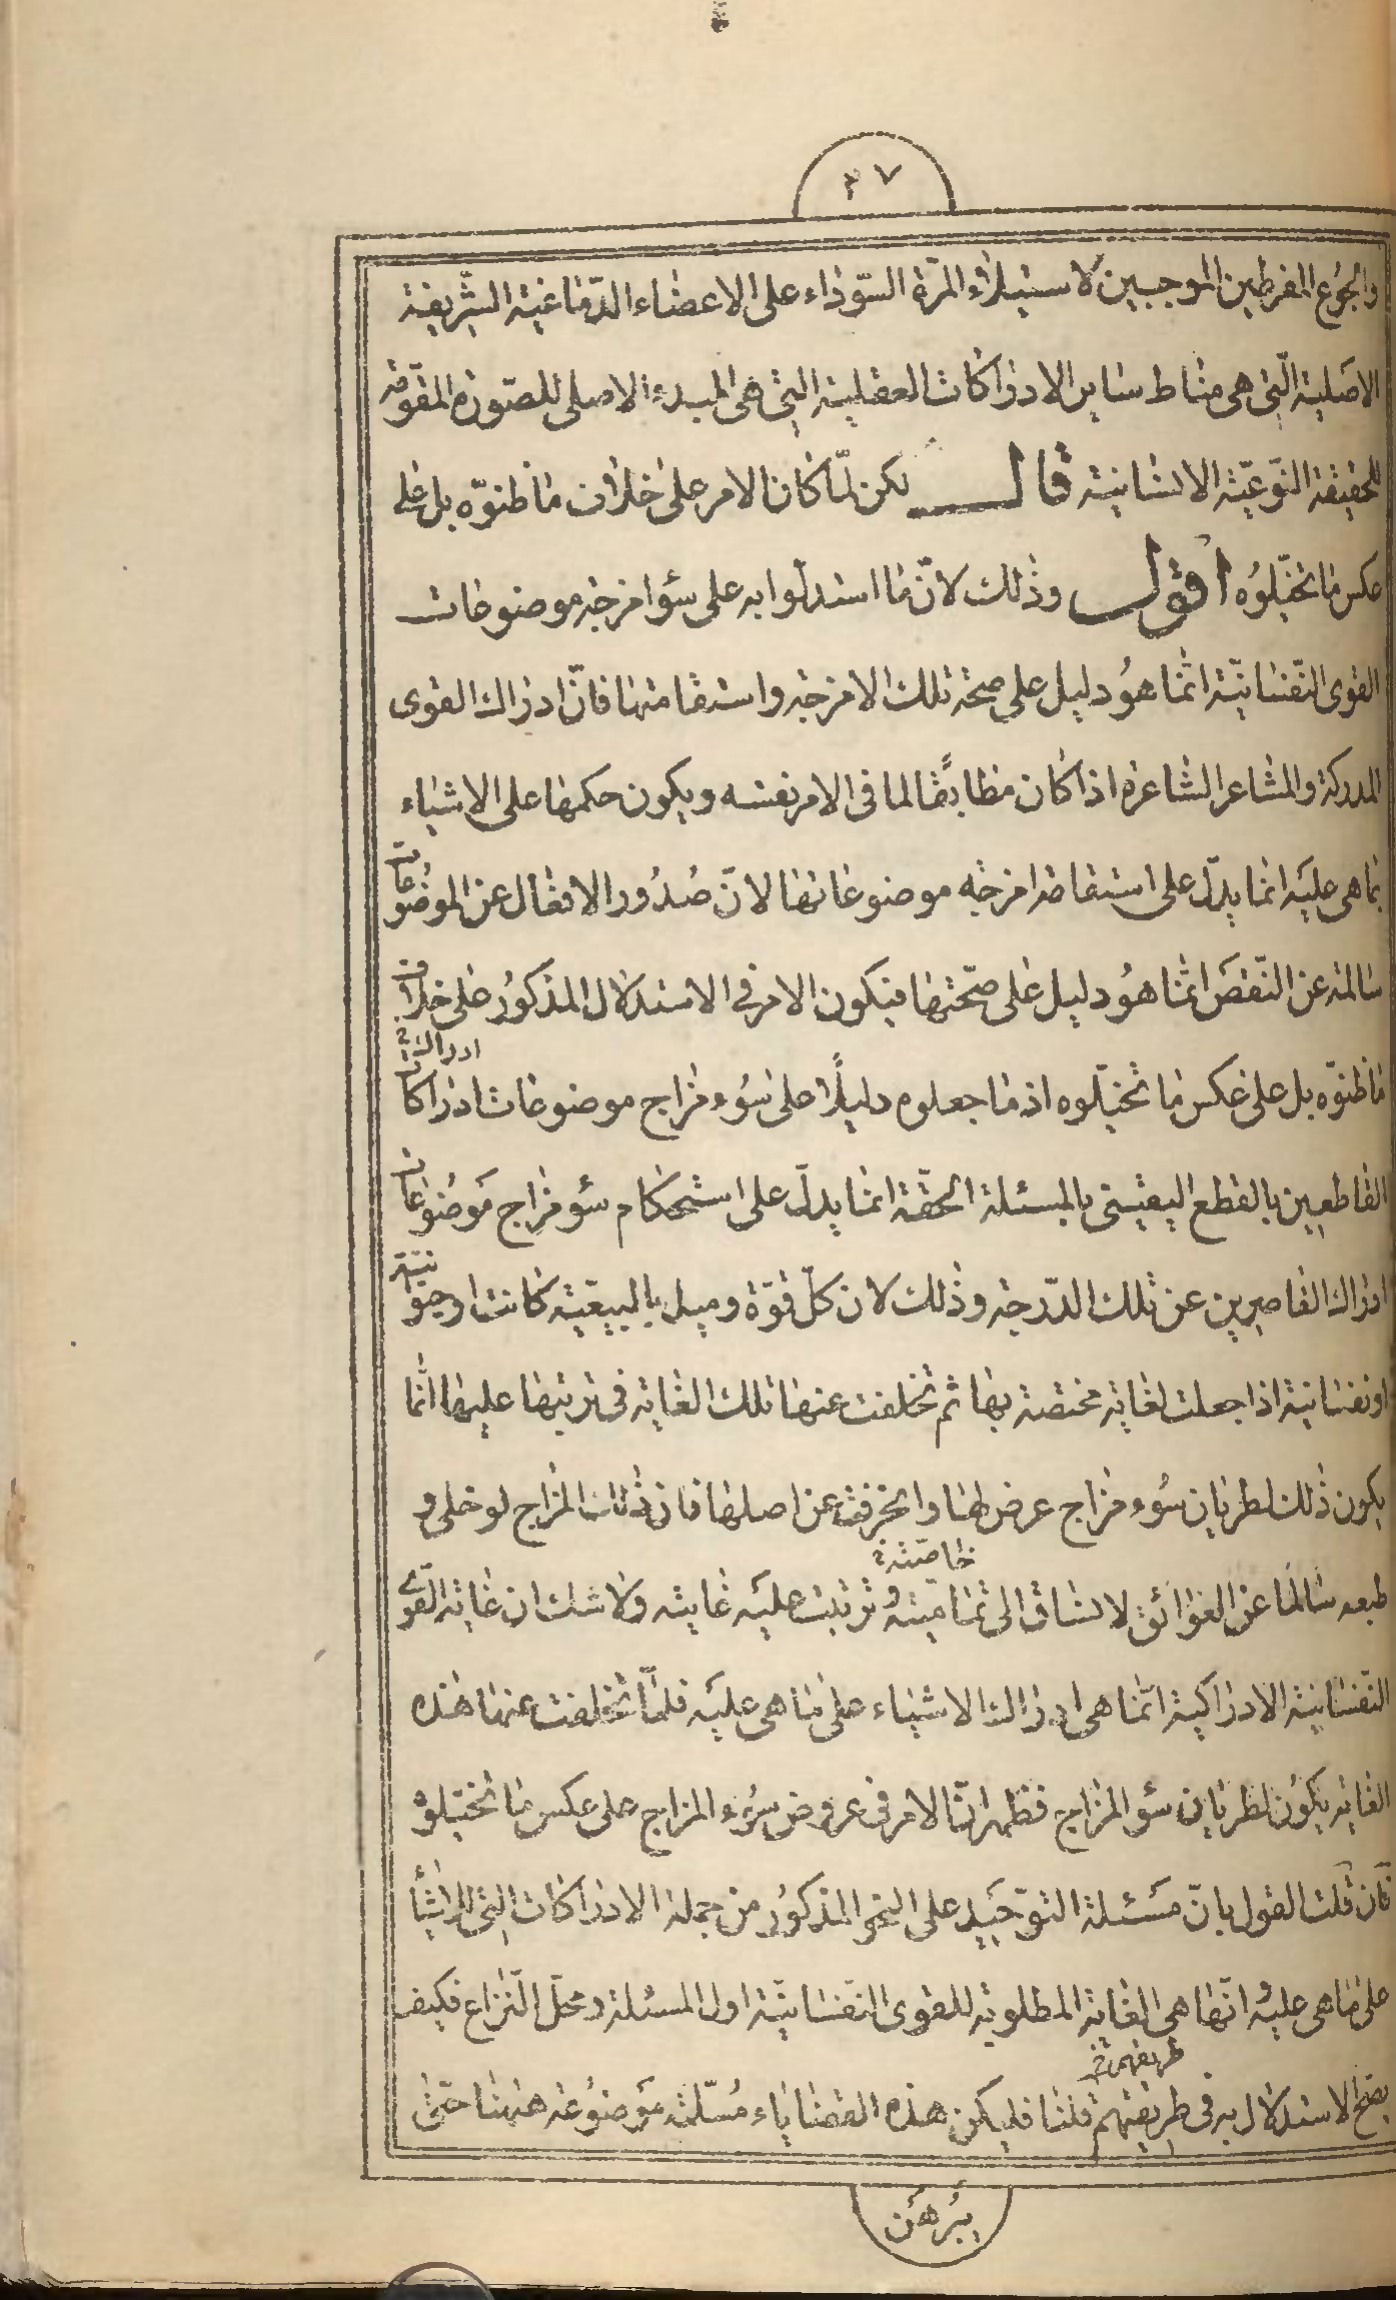 ٣٧
والجوع المفرطين الموجبين لاستيلاء المرّة السّوداء على الاعضاء الدّماغية الشّريفة
الاصلية الّتى هى مناط ساير الادراكات العقلية التى هى المبدء الاصلى للصّورة المقوّمة
للحقيقة النّوعيّة الانسانية قال لكن لمّا كان الامر على خلاف ما ظنوّه بل على
عكس ما تخيّلوُه اقول وذلك لانّ ما استدلّوا به على سؤ امزجة موضوعات
القوى النّفسانيّة انّما هوُ دليل على صحة تلك الامزجة واستقامتها فانّ ادراك القوى
المدركة والمشاعر الشاعرة اذا كان مطابقًا لما فى الامر نفسه ويكون حكمها على الاشياء
بما هى عليَه انما يدلّ على استقامة امزجة موضوعاتها لانّ صُدُور الافعال عن الموضُوعات
سالمة عن النّقصَ انّما هوُ دليل على صحّتها فيكون الامر فى الاستدلال المذكوُر على خلاف
ما ظنوّه بل على عكس ما تخيّلوه اذ ما جعلوه دليلًا على سُوء مزاج موضوعات ادراكات
ادراك
القاطعين بالقطع اليقينى بالمسئلة الحقّة انما يدلّ على استحكام سؤ مزاج مَوضُوعات
ادراك القاصرين عن تلك الدّرجة وذلك لان كلّ قوّة وميل بالطبيعيّة كانت او حيوانيّة
او نفسانية اذا جعلت لغاية مختصة بها ثم تخلفت عنها تلك الغاية فى ترتبها عليها انّما
يكون ذلك لطريان سُوء مزاج عرض لها وانحرفت عن اصلها فان ذلك المزاج لو خلى و
طبعه سالمًا عن العوائق لانساق الى تماميّته وترتبت عليَه غايته ولا شك ان غاية القوّى
خاصّته
النفسانية الادراكية انّما هى ادراك الاشياء على ما هى عليَه فلمّا تخلفت عنها هذه
الغاية يكوُن لطريان سؤ المزاج فظهر انّ الامر فى عروض سوُء المزاج على عكس ما تخيّلوه
فان قلت القول بانّ مسَئلة التوّحَيد على النحو المذكوُر من جملة الادراكات التى للاشياء
على ما هى عليُه انّها هى الغاية المطلوبة للقوى النّفسانيّة اول المسئلة ومحلّ النّزاع فكيف
يصحّ الاستدلال به فى طريقتهم قلنا فليكن هذه القضاياء مُسلّمة مَوضوُعة هٰهُنا حتّى
طريقهم
يُبَرهَن